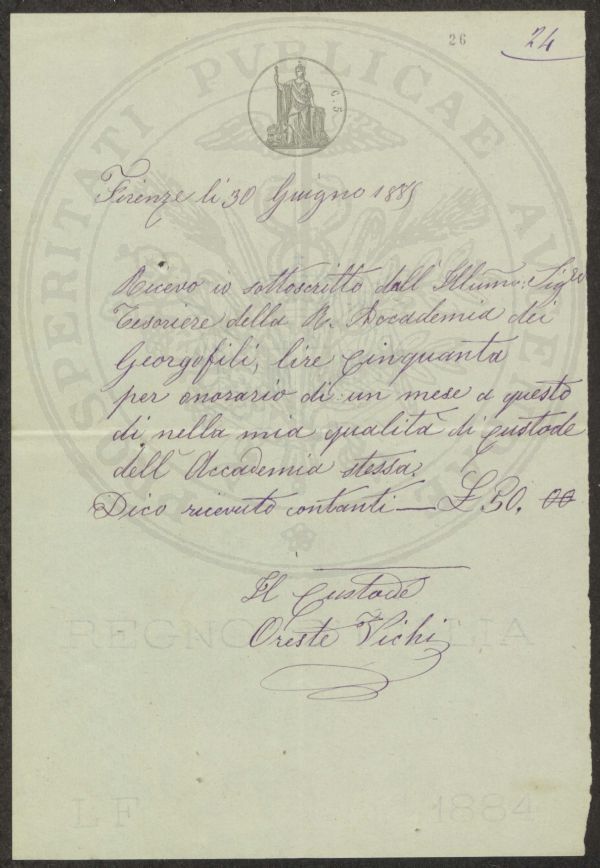 26
24
C. 5
PROSPERITATI PVBLICAE AVGE
Firenze li 30 Giugno 1885
Ricevo io sottoscritto dall' Illumo: Sigre
Tesoriere della R. Accademia dei
Georgofili, lire Cinquanta
per onorario di un mese a questo
dì nella mia qualità di Custode
dell' Accademia stessa.
Dico ricevuto contanti — £ 50. 00
Il Custode
Oreste Vichi
REGNO D'ITALIA
L F 1884